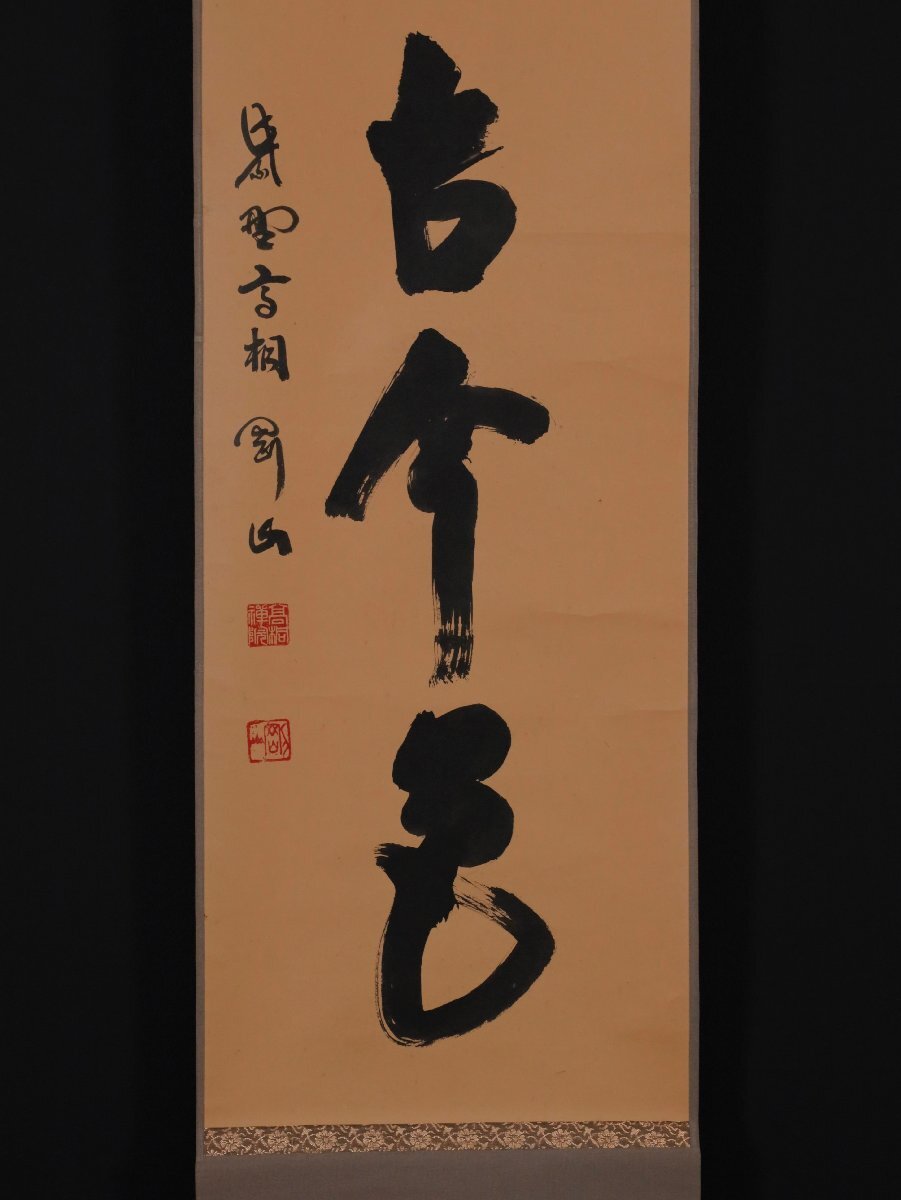 古今色
紫野高桐 剛山
高桐禪院
剛山